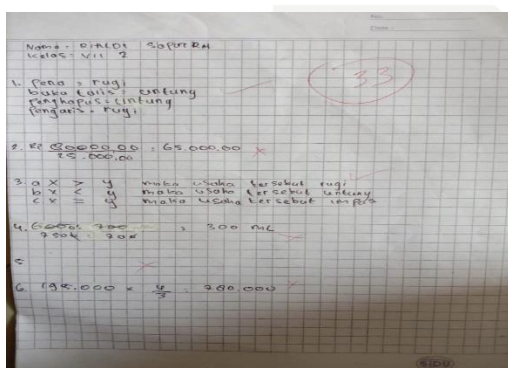 Nama = RIALDI SAPUTRA
Kelas = VII 2
33
1. Pena = rugi
buku tulis = untung
Penghapus = untung
Pengaris = rugi
2. Rp 80000,00 = 65.000,00
15.000,00
3. a x > y maka usaha tersebut rugi
b x < y maka usaha tersebut untung
c x = y maka usaha tersebut impas
4. 700 = 300
5
6. 195.000 x 4/3 = 260.000
SIDU